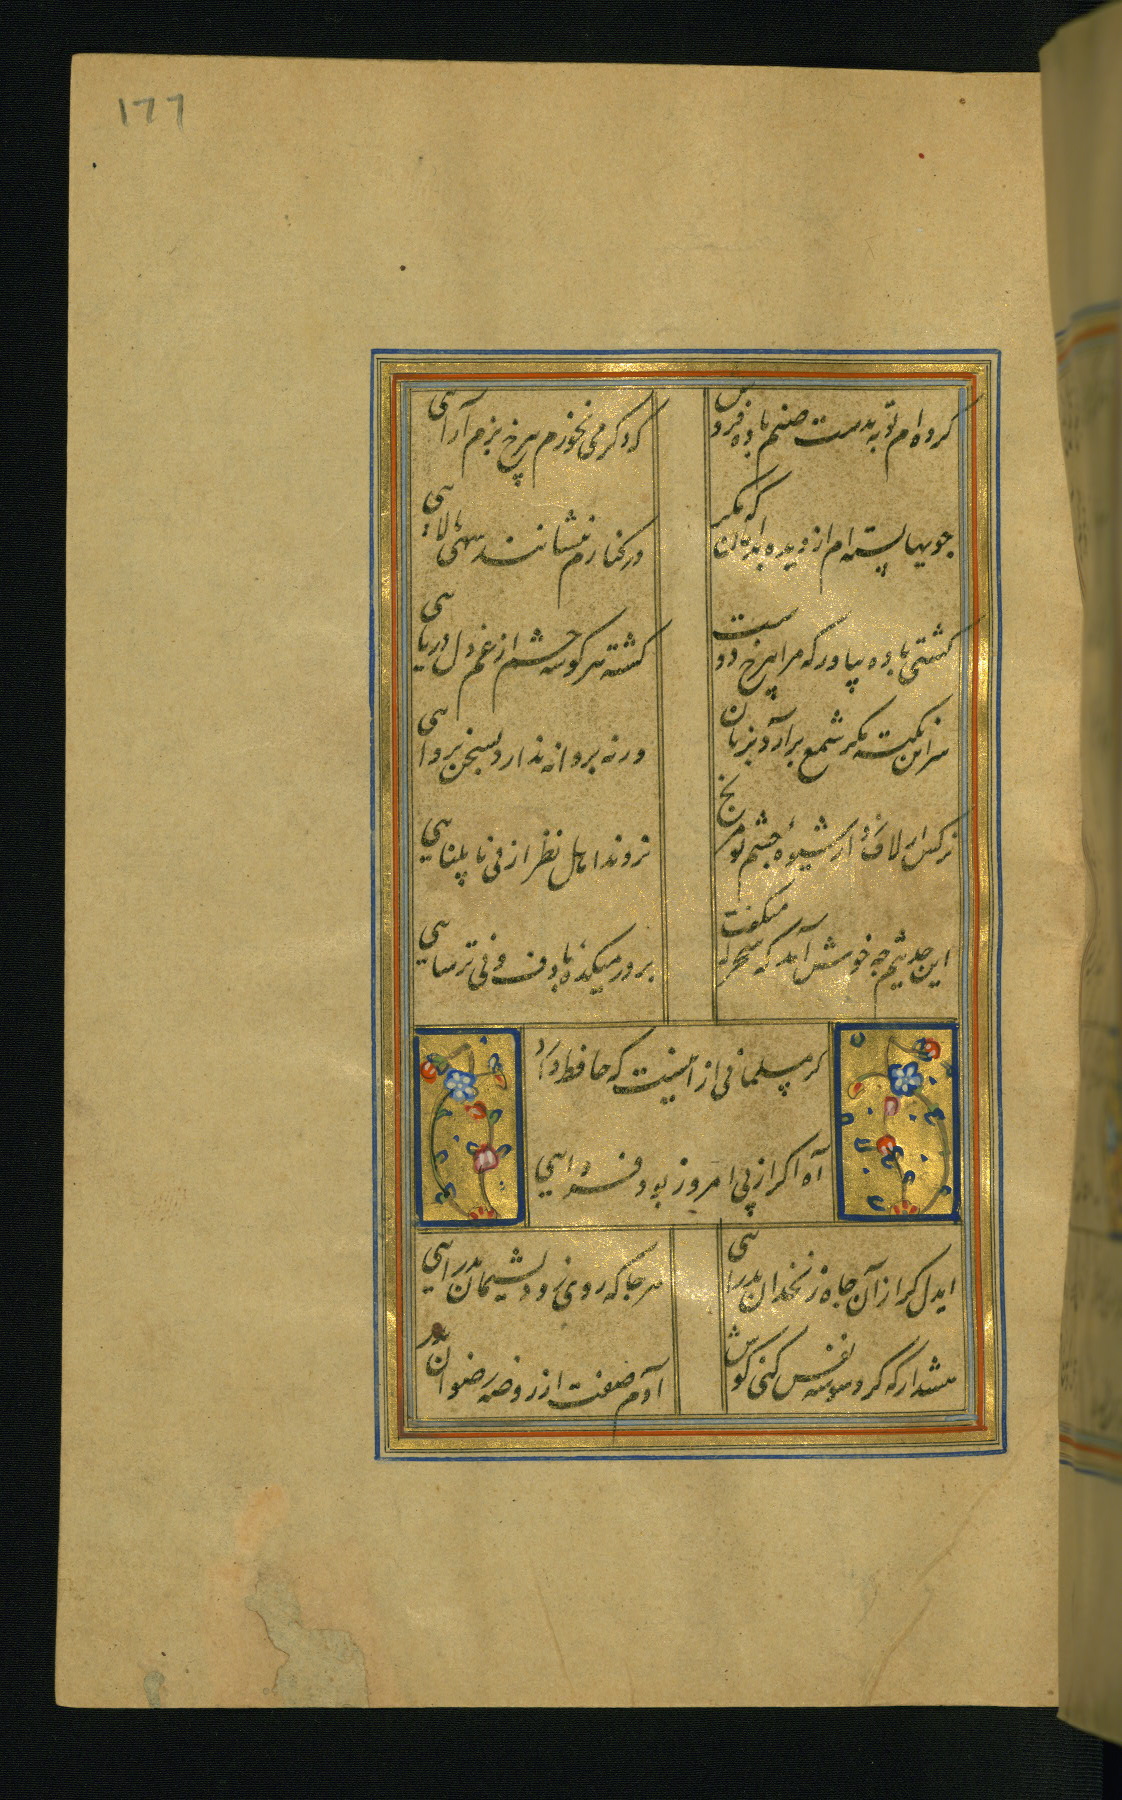 177
کرده‌ام توبه بدست صنم باده فروش
که دکر می نخورم بی رخ بزم آرایی
جویها بسته‌ام از دیده بدامان که مکر
در کنارم بنشانند سهی بالایی
کشتی باده بیاور که مرا بی رخ دوست
کشته هر کوشه چشم از غم دل دریایی
سر این نکته مکر شمع برآرد بزبان
ورنه پروانه ندارد بسخن پروایی
نرکس ار لاف زد از شیوه چشم تو مرنج
نروند اهل نظر از پی نابینایی
این حدیثم چه خوش آمد که سحرکه میکفت
بر در میکده با دف و نی ترسایی
کر مسلمانی از اینست که حافظ دارد
آه اکر از پی امروز بود فردایی
ایدل کر از آن چاه زنخدان بدرایی
هر جا که روی زود پشیمان بدرایی
هشدار که کر وسوسه نفس کنی کوش
آدم صفت از روضه رضوان بدر